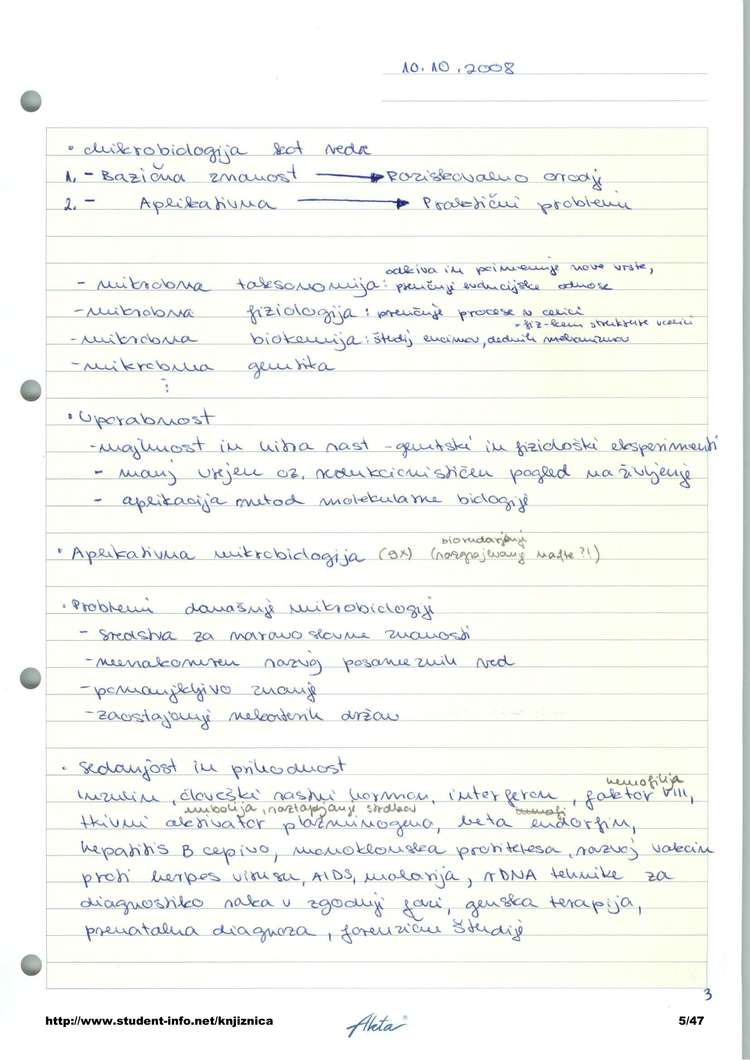 10.10.2008
• Mikrobiologija kot veda
1. - Bazična znanost → Raziskovalno orodje
2. - Aplikativna → Praktični problemi
odkiva in poimenuje nove vrste,
- mikrobna taksonomija: preučuje evolucijske odnose
- mikrobna fiziologija: preučuje procese v celici
• fiz-kem strukture v celici
- mikrobna biokemija: študij encimov, dednih mehanizmov
- mikrobna genetika
⋮
• Uporabnost
- majhnost in hitra rast - genetski in fiziološki eksperimenti
- manj vrjen oz. redukcionističen pogled na življenje
- aplikacija metod molekularne biologije
biorudarjenje
• Aplikativna mikrobiologija (9x) (razgrajevanje nafte?!)
• Problemi današnje mikrobiologije
- sredstva za naravoslovne znanosti
- neenakomeren razvoj posameznih ved
- pomanjkljivo znanje
- zaostajanje nekaterih držav
• Sedanjost in prihodnost
hemofilija
Inzulin, človeški rastni hormon, interferon, faktor VIII,
embolija, raztapljanje strdkov
tkivni aktivator plazminogena, beta endorfin,
hepatitis B cepivo, monoklonska protitelesa, razvoj vakcin
proti herpes virusu, AIDS, malarija, rDNA tehnike za
diagnostiko raka v zgodnji fazi, genska terapija,
prenatalna diagnoza, forenzične študije
3
http://www.student-info.net/knjiznica
Akta
5/47